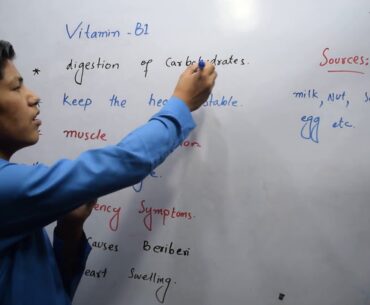 Vitamin - B1
* digestion of Carbohydrates.
Keep the stable.
muscle
Symptoms.
Causes Beriberi
Swelling.
Sources:
milk, Nut,
egg etc.